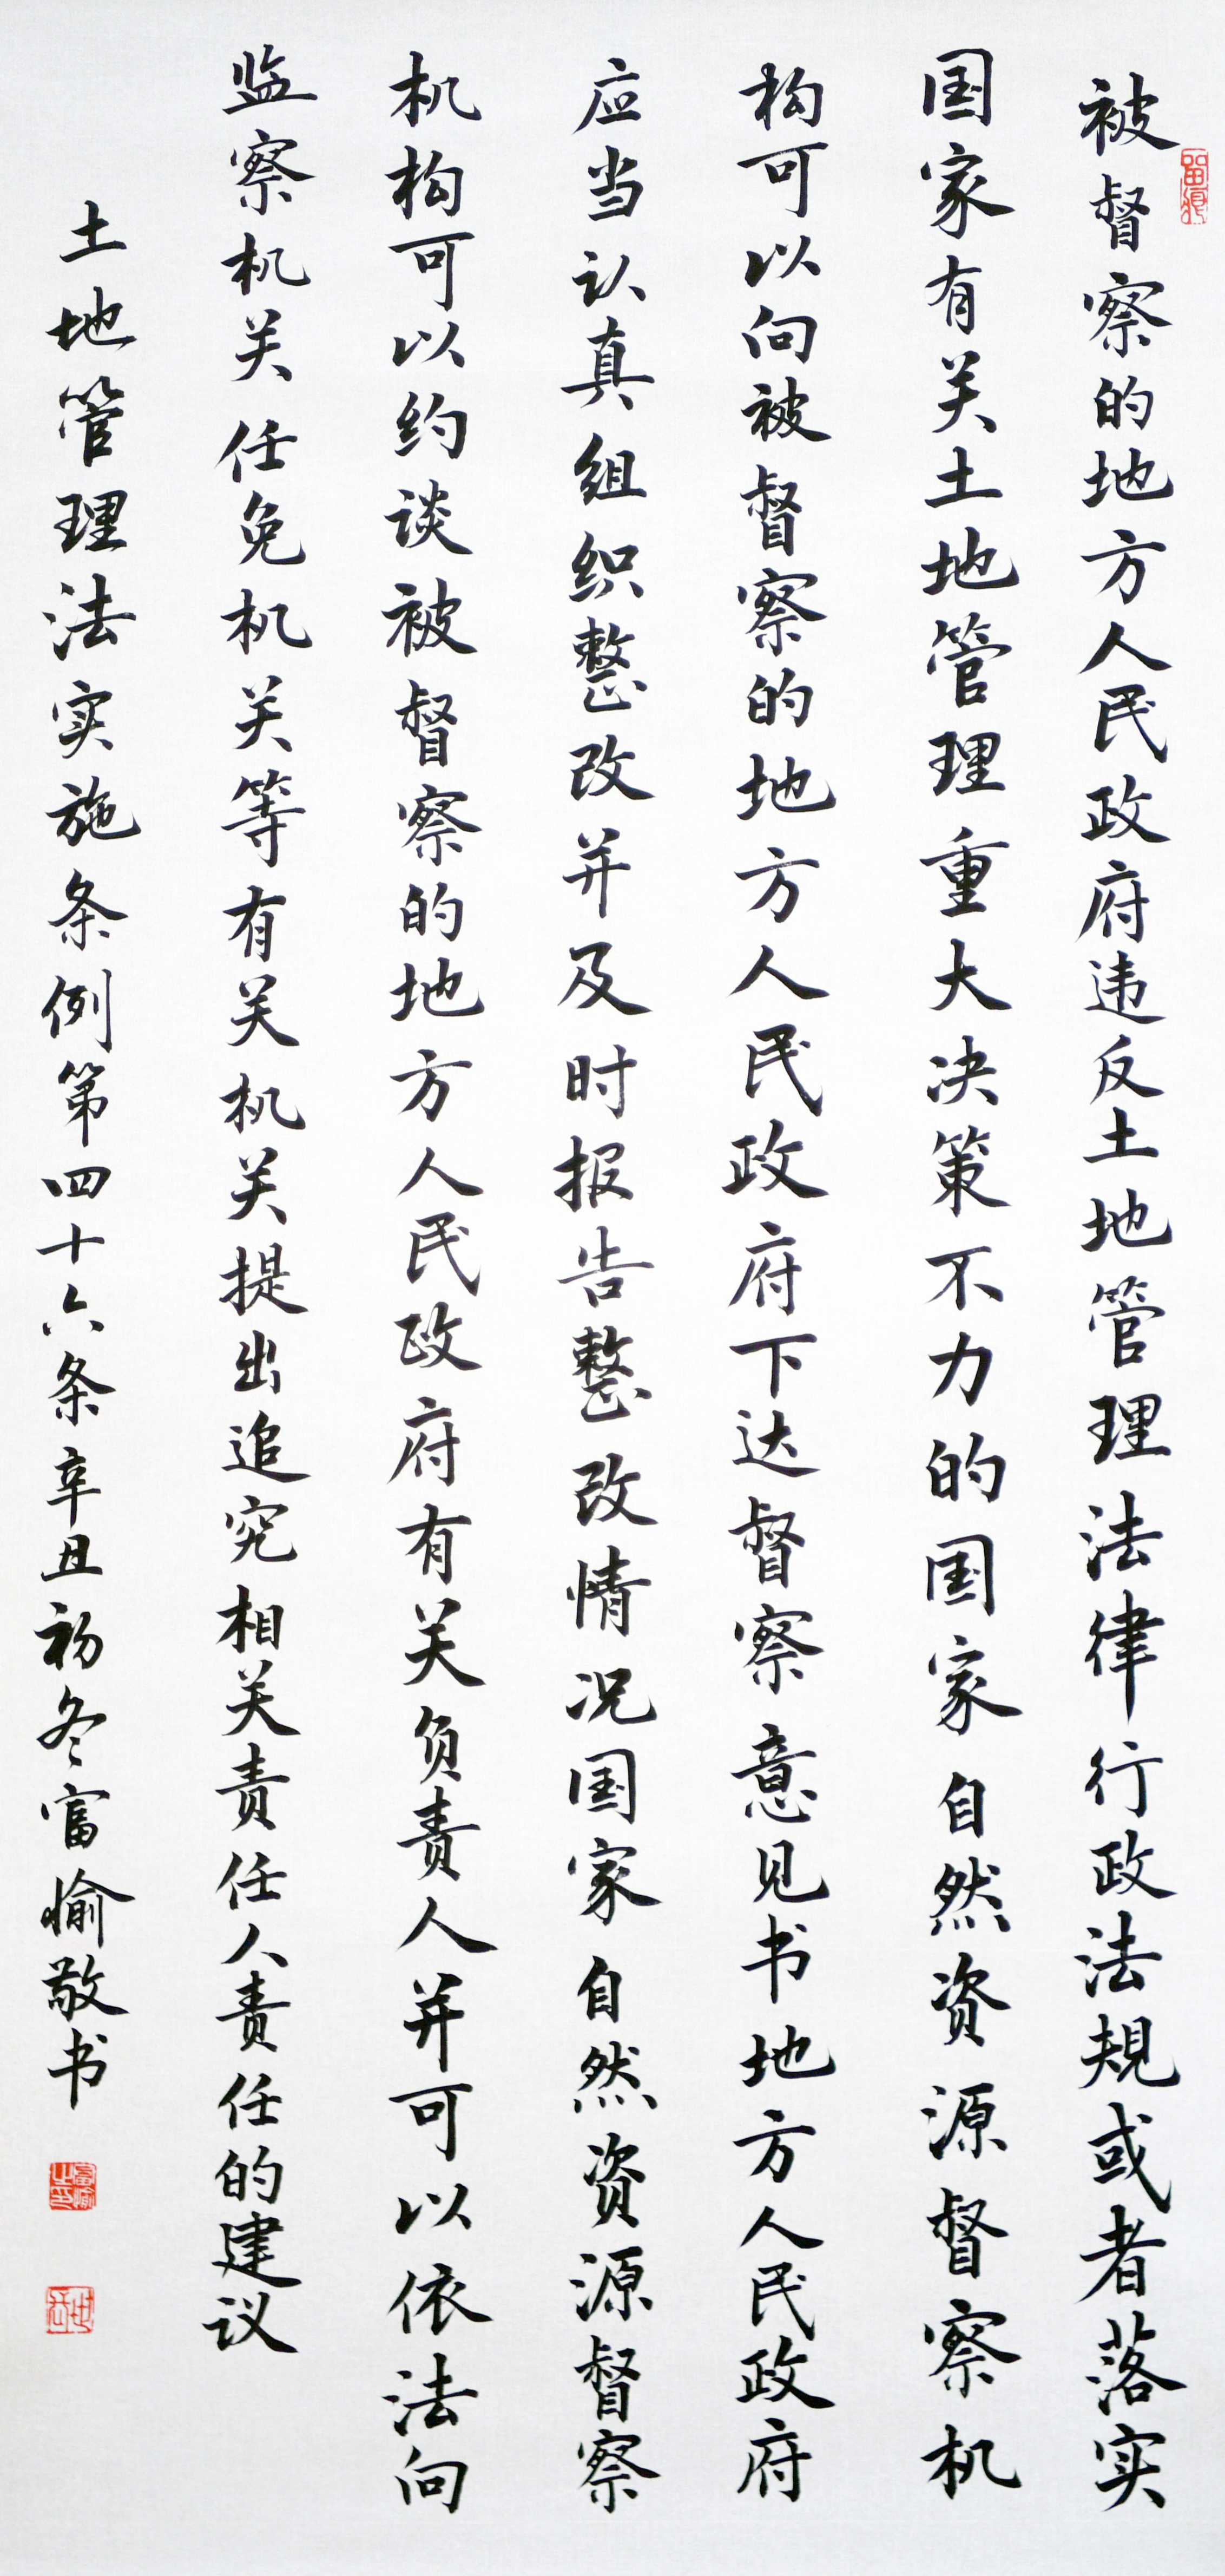 被督察的地方人民政府违反土地管理法律行政法规或者落实
国家有关土地管理重大决策不力的国家自然资源督察机
构可以向被督察的地方人民政府下达督察意见书地方人民政府
应当认真组织整改并及时报告整改情况国家自然资源督察
机构可以约谈被督察的地方人民政府有关负责人并可以依法向
监察机关任免机关等有关机关提出追究相关责任人责任的建议
土地管理法实施条例第四十六条辛丑初冬富愉敬书